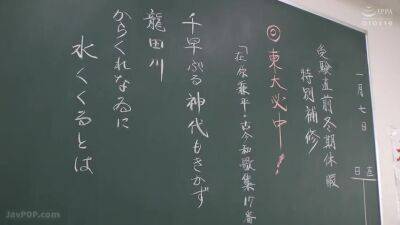 一月七日
日直
受験直前冬期休暇
特別補修
◎東大必中!
「在原業平・古今和歌集17番
千早ぶる神代もきかず
龍田川
からくれなゐに
水くくるとは
JavPOP.com